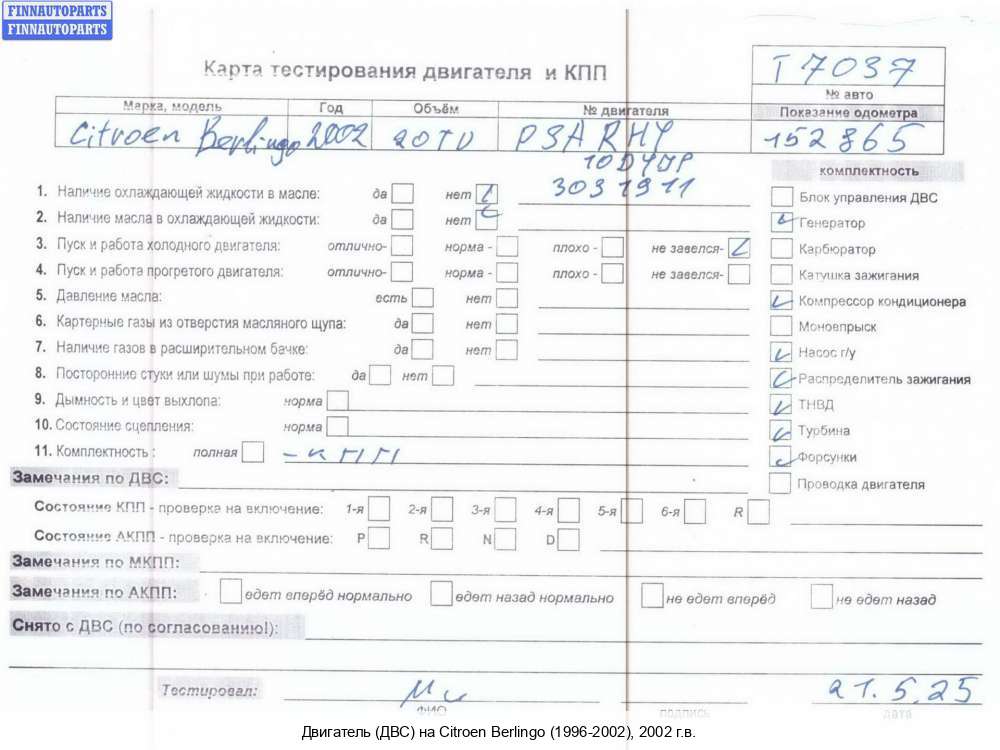 FINNAUTOPARTS
FINNAUTOPARTS
Карта тестирования двигателя и КПП
T 7037
№ авто
Марка, модель Год Объём № двигателя Показание одометра
Citroen Berlingo 2002 20TD PSA RHY 152865
10DYUP
3031911
комплектность
1. Наличие охлаждающей жидкости в масле: да нет
Блок управления ДВС
2. Наличие масла в охлаждающей жидкости: да нет
Генератор
3. Пуск и работа холодного двигателя: отлично- норма - плохо - не завелся-
Карбюратор
4. Пуск и работа прогретого двигателя: отлично- норма - плохо - не завелся-
Катушка зажигания
5. Давление масла: есть нет
Компрессор кондиционера
6. Картерные газы из отверстия масляного щупа: да нет
Моновпрыск
7. Наличие газов в расширительном бачке: да нет
Насос г/у
8. Посторонние стуки или шумы при работе: да нет
Распределитель зажигания
9. Дымность и цвет выхлопа: норма
ТНВД
10. Состояние сцепления: норма
Турбина
11. Комплектность : полная - КПП
Форсунки
Замечания по ДВС:
Проводка двигателя
Состояние КПП - проверка на включение: 1-я 2-я 3-я 4-я 5-я 6-я R
Состояние АКПП - проверка на включение: P R N D
Замечания по МКПП:
Замечания по АКПП: едет вперёд нормально едет назад нормально не едет вперёд не едет назад
Снято с ДВС (по согласованию!):
Тестировал: 21.5.25
ФИО подпись дата
Двигатель (ДВС) на Citroen Berlingo (1996-2002), 2002 г.в.